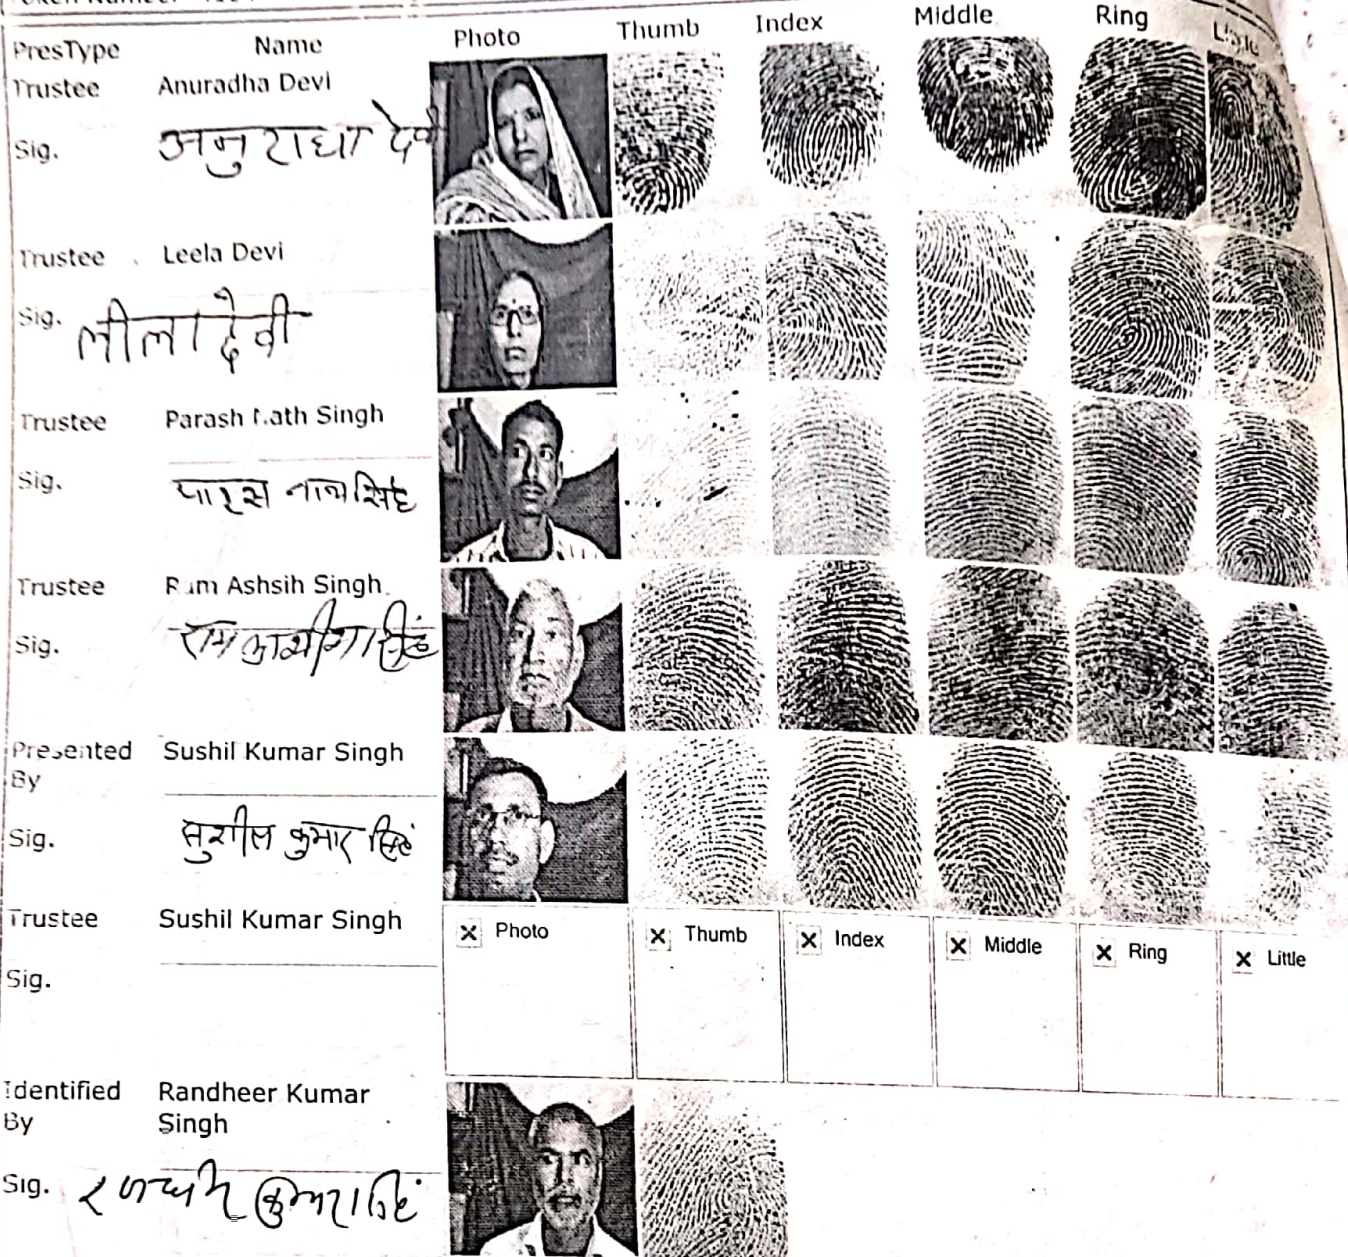 PresType Name Photo Thumb Index Middle Ring Little
Trustee Anuradha Devi
Sig. अनुराधा देवी
Trustee Leela Devi
Sig. लीला देवी
Trustee Parash Nath Singh
Sig. पारस नाथ सिंह
Trustee Ram Ashsih Singh
Sig. राम आशीश सिंह
Presented Sushil Kumar Singh
By
Sig. सुशील कुमार सिंह
Trustee Sushil Kumar Singh Photo Thumb Index Middle Ring Little
Sig.
Identified Randheer Kumar
By Singh
Sig. रणधीर कुमार सिंह